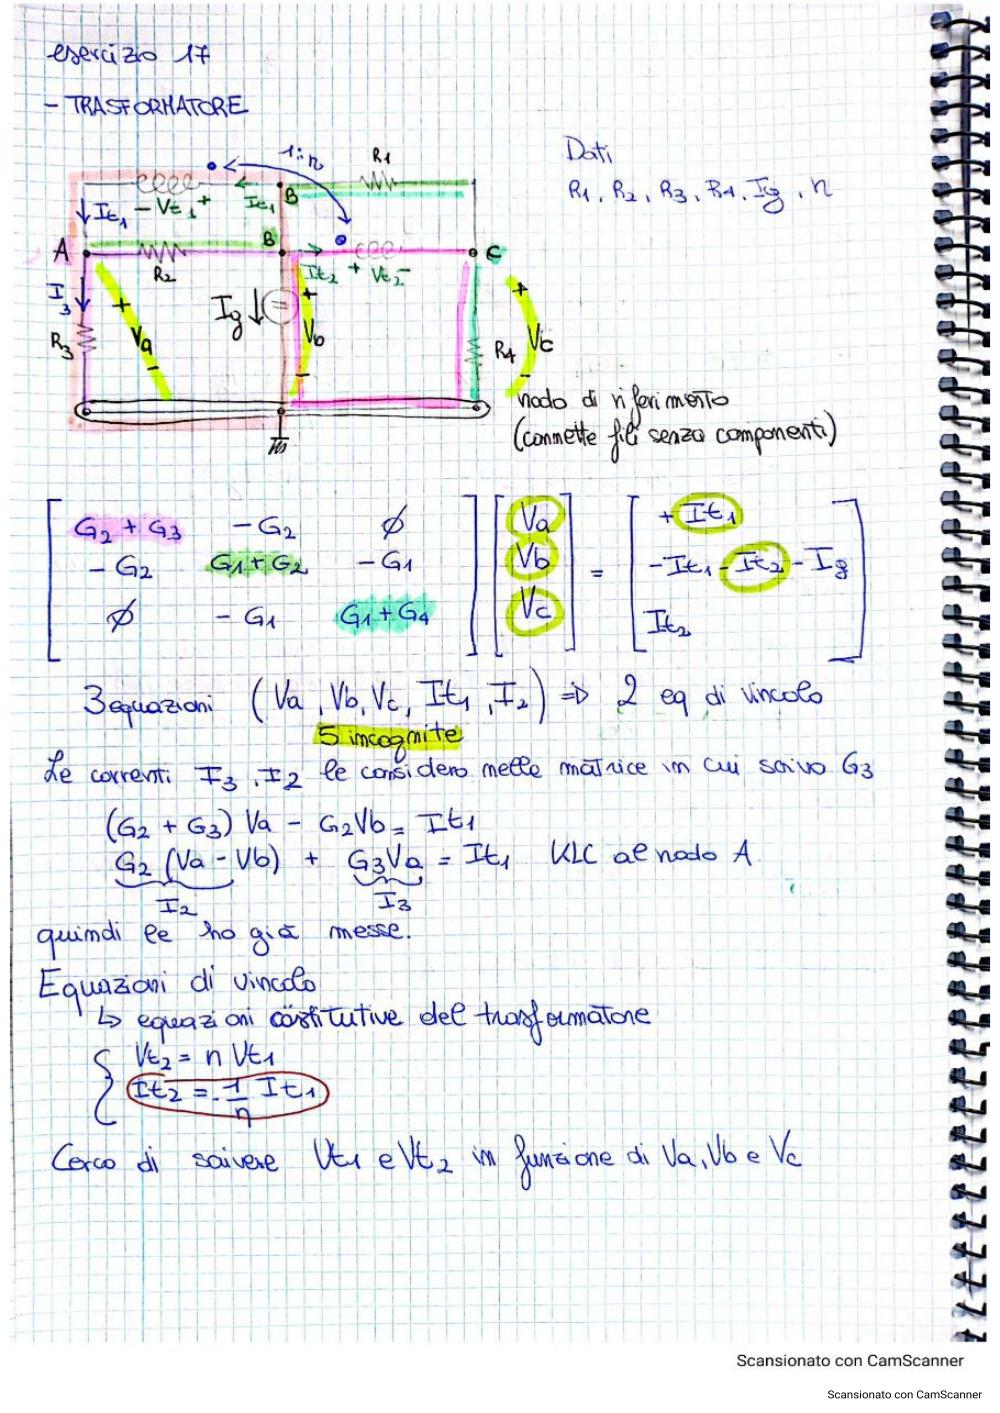 esercizio 17
- TRASFORMATORE
1:n
R1
Dati
R1, R2, R3, R4, Ig, n
It1
- Vt1 +
It1
B
A
B
C
R2
It2
+ Vt2 -
I3
+
Va
-
Ig
+
Vb
-
R3
R4
+
Vc
-
nodo di riferimento
(connette fili senza componenti)
G2 + G3 - G2 ∅ Va + It1
- G2 G1 + G2 - G1 Vb = - It1 - It2 - Ig
∅ - G1 G1 + G4 Vc It2
3 equazioni (Va, Vb, Vc, It1, I2) => 2 eq di vincolo
5 incognite
Le correnti I3, I2 le considero nelle matrice in cui scrivo G3
(G2 + G3) Va - G2Vb = It1
G2 (Va - Vb) + G3Va = It1 KLC al nodo A
I2 I3
quindi le ho già messe.
Equazioni di vincolo
↳ equazioni costitutive del trasformatore
{ Vt2 = n Vt1
It2 = - 1/n It1
Cerco di scivere Vt1 e Vt2 in funzione di Va, Vb e Vc
Scansionato con CamScanner
Scansionato con CamScanner